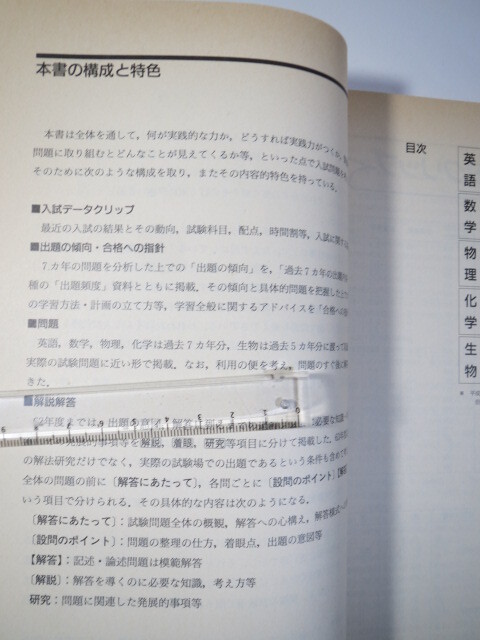 本書の構成と特色
本書は全体を通して，何が実践的な力か，どうすれば実践力がつくか，
問題に取り組むとどんなことが見えてくるか等，といった点で入試問題
そのために次のような構成を取り，またその内容的特色を持っている．
■入試データクリップ
最近の入試の結果とその動向，試験科目，配点，時間割等，入試に関する
■出題の傾向・合格への指針
7ヵ年の問題を分析した上での「出題の傾向」を，「過去7ヵ年の出題
種の「出題頻度」資料とともに掲載，その傾向と具体的問題を把握した上で
の学習方法・計画の立て方等，学習全般に関するアドバイスを「合格への指
■問題
英語，数学，物理，化学は過去7ヵ年分，生物は過去5ヵ年分に渡って
実際の試験問題に近い形で掲載．なお，利用の便を考え，問題のすぐ後に解
きた．
■解説解答
年度までは，出題の意図，解答
必要な知識
事項等を解説，着眼，研究等項目に分けて掲載した．
の解法研究だけでなく，実際の試験場での出題であるという条件も含めて
全体の問題の前に〔解答にあたって〕，各問ごとに〔設問のポイント〕【解答
いう項目で分けられる．その具体的な内容は次のようになる．
〔解答にあたって〕：試験問題全体の概観，解答への心構え，解答
〔設問のポイント〕：問題の整理の仕方，着眼点，出題の意図等
【解答】：記述・論述問題は模範解答
〔解説〕：解答を導くのに必要な知識，考え方等
研究：問題に関連した発展的事項等
目次
英語
数学
物理
化学
生物